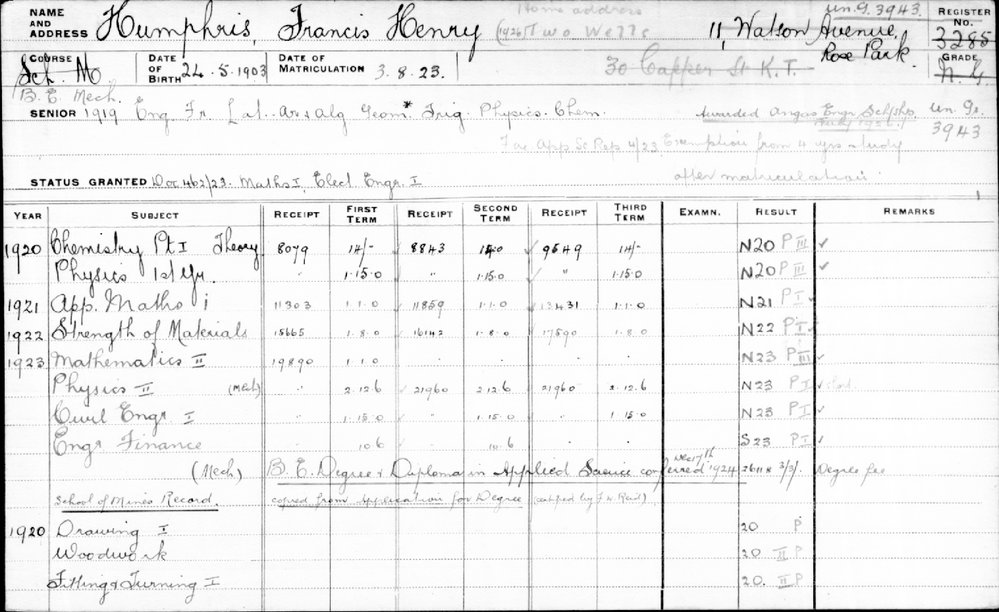 NAME AND ADDRESS Humphris, Francis Henry (1926 Two Wells 11, Watson Avenue, Rose Park. REGISTER No. 3285
Home address
un. G. 3943.
30 Capper St K.T.
COURSE Sch. M. DATE OF BIRTH 24.5.1903 DATE OF MATRICULATION 3.8.23. GRADE N.G.
B.E. Mech.
SENIOR 1919 Eng. Fr. Lat. Ar & Alg Geom* Trig. Physics. Chem. Awarded Angas Engr. Schship un. Gr. 3943
4/23 Exemption from 4 yrs study
after matriculation
STATUS GRANTED Doc 462/23. Maths I, Elect. Engr. I
YEAR SUBJECT RECEIPT FIRST TERM RECEIPT SECOND TERM RECEIPT THIRD TERM EXAMN. RESULT REMARKS
1920 Chemistry Pt I Theory 8079 14/- 8843 14.0 9649 14/- N20 P III ✓
Physics 1st Yr. " 1.15.0 " 1.15.0 " 1.15.0 N20 P III ✓
1921 App. Maths i 11303 1.1.0 11859 1.1.0 13431 1.1.0 N21 P I ✓
1922 Strength of Materials 15665 1.8.0 16142 1.8.0 17590 1.8.0 N22 P I ✓
1923 Mathematics II 19890 1.1.0 N23 P III ✓
Physics II (Mech) " 2.12.6 21960 2.12.6 21960 2.12.6 N23 P I ✓
Civil Engr. I 1.15.0 " 1.15.0 1.15.0 N23 P I ✓
Engr Finance 10.6 10.6 S23 P I ✓
(Mech) B.E. Degree & Diploma in Applied Science conferred Dec 17th 1924 26118 3/3/. Degree fee
School of Mines Record. copied from Application for Degree (certified by F W Reid)
1920 Drawing I 20 P
Woodwork 20 II P
Fitting & Turning I 20. II P